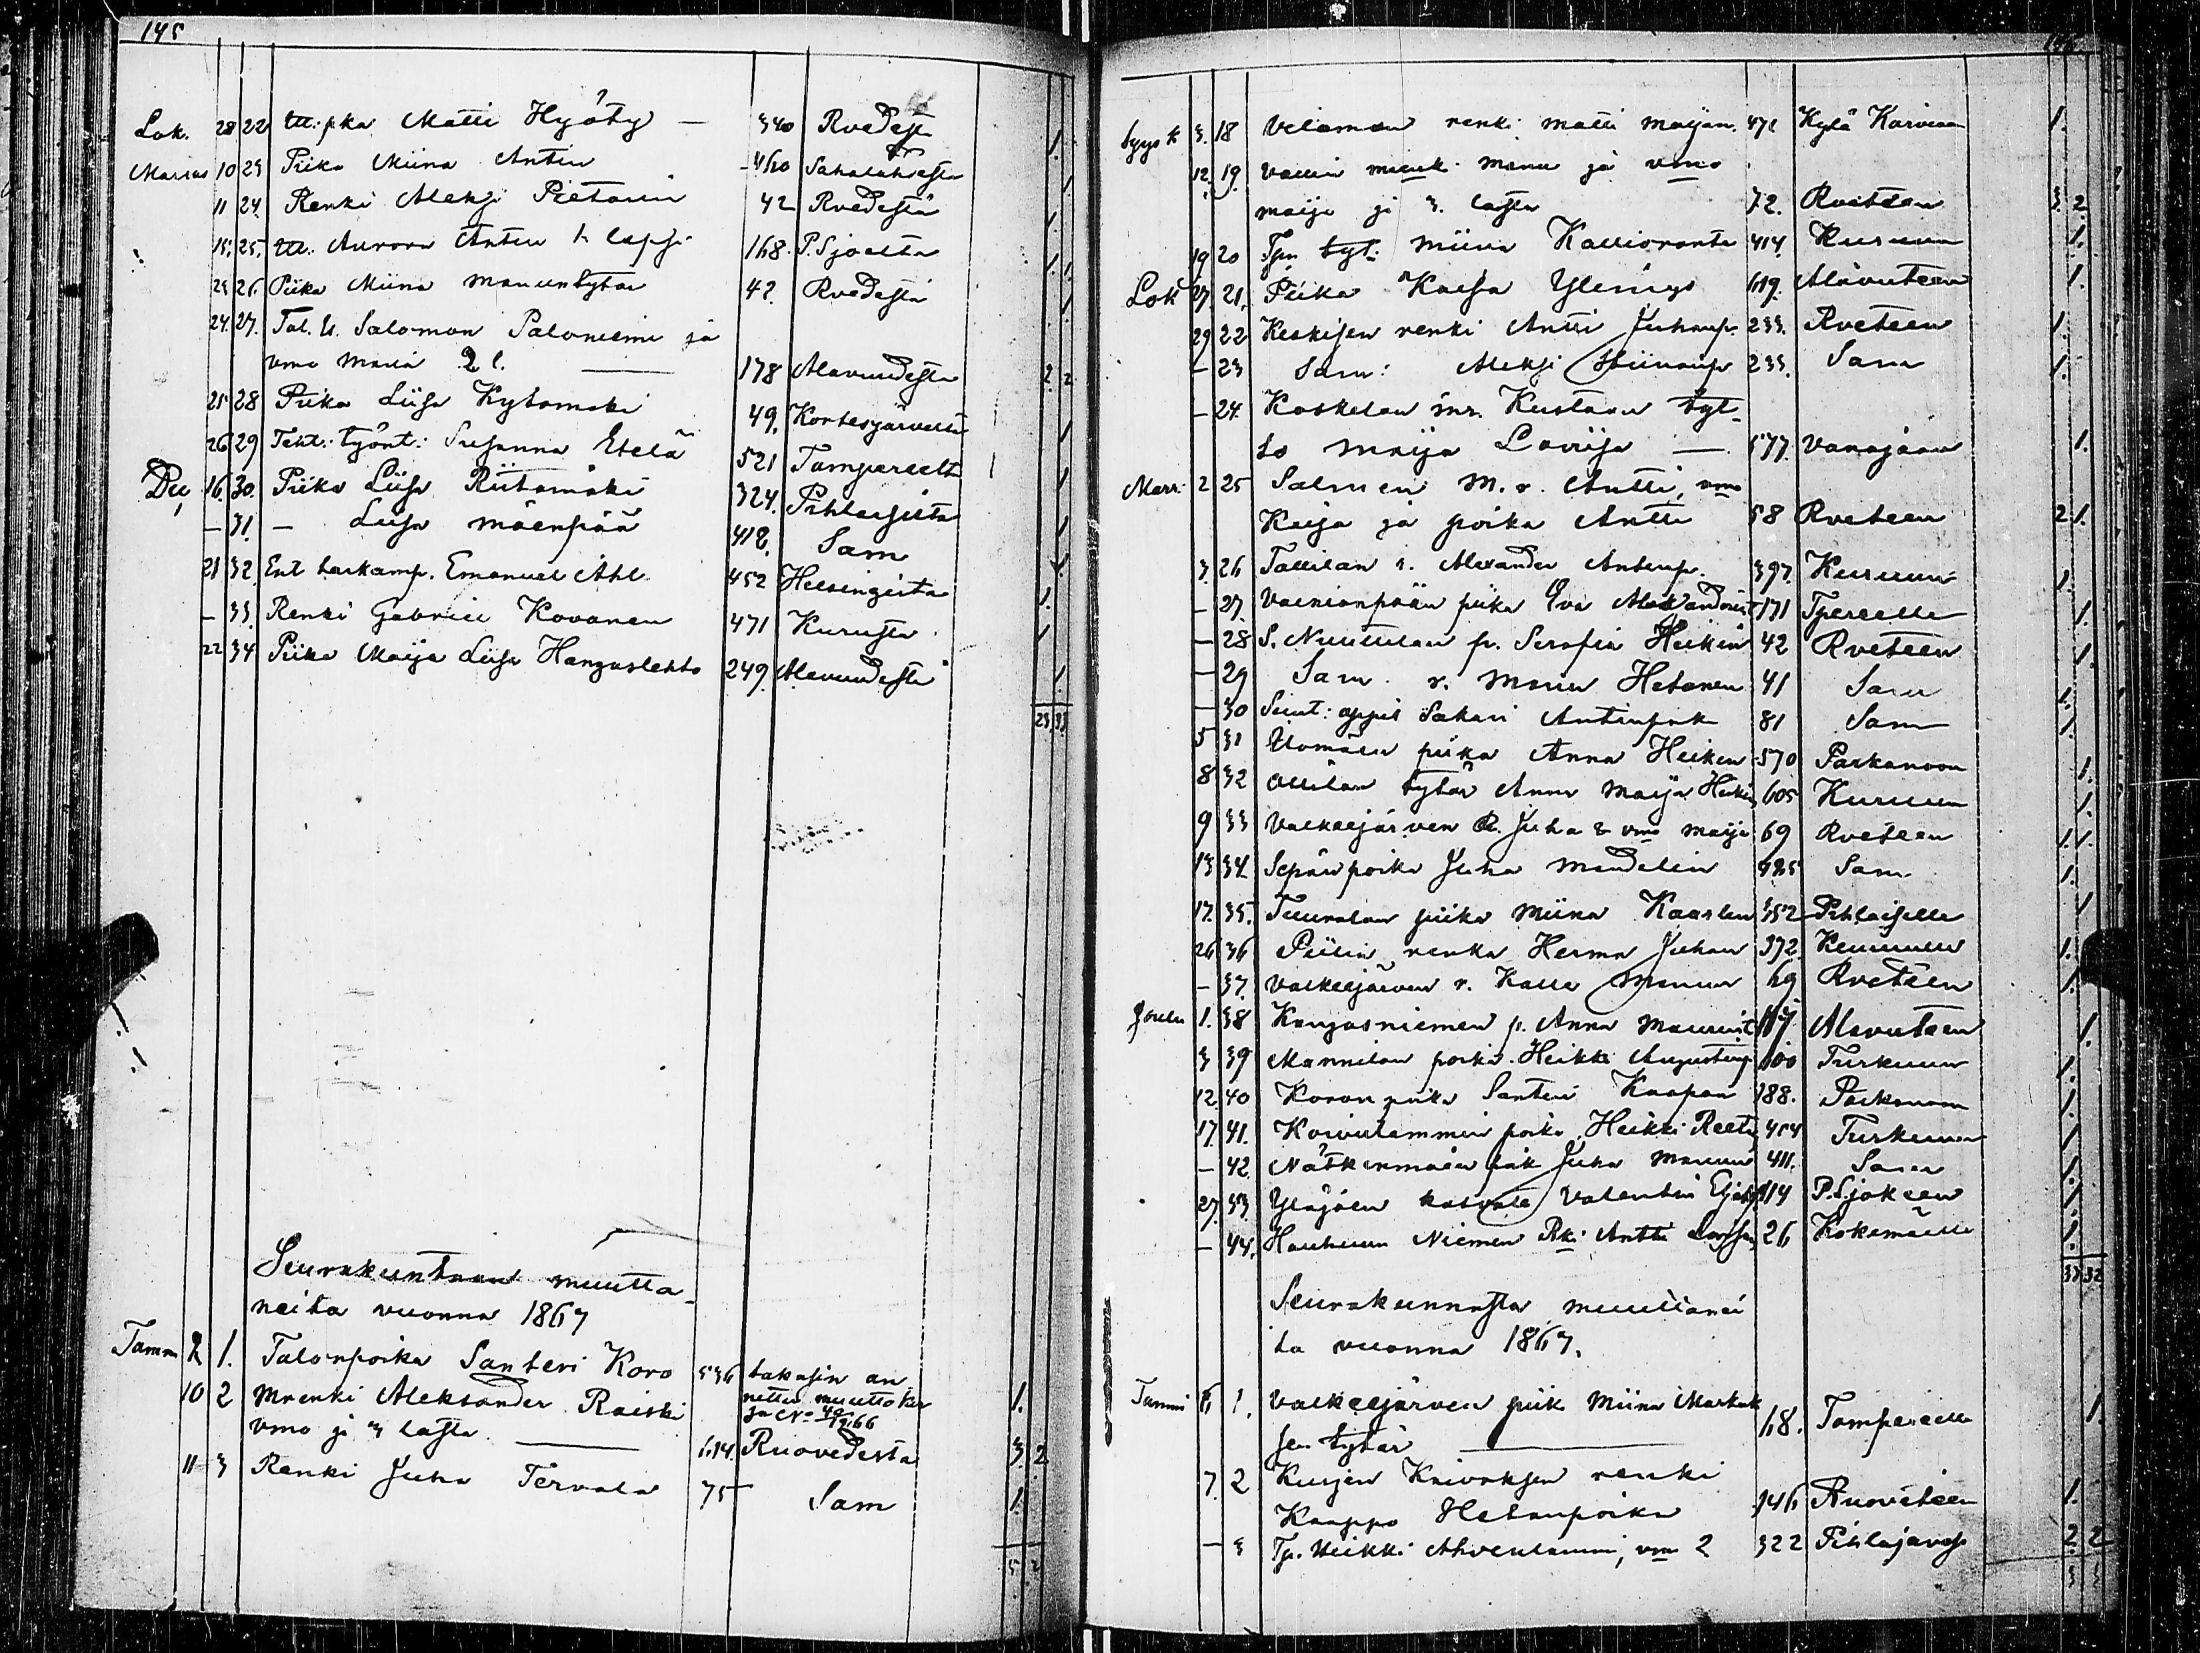 145
Lok. 28 22 Itt: pka Matti Hyöty — 340 Rvedestä 1.
Marras 10 23 Piika Miina Antin - 460 Sahalahdesta 1
11 24. Renki Aleksi Pietarin 42 Rvedestä 1.
25. Itt. Aurora Antin 1. lapsi 168. P.Sjoelta 1. 1.
23 26 Piika Miina Manuntytär 42. Rvedestä 1
24. 27. Tal. Salomon Paloniemi ja
vmo Maria 2 l. — 178 Alavuudesta 2. 2
25 28 Piika Liisa Kytömäki 49. Kortesjärveltä 1
26 29 Teht: työnt: Susanna Etelä 521 Tampereelta 1
Dec, 16. 30. Piika Liisa Riitamäki 324. Pihlajista 1
— 31. — Liisa Mäenpää 418. Sam 1.
21 32. Ent. Emanuel Ahl. 452 Helsingista 1.
— 33. Renki Gabriel Kovanen 471 Kurusta 1
22 34 Piika Maija Liisa Hangaslehto 249. Alavuudesta 1.
23 33
Seurakuntaan muutta-
neita vuonna 1867
Tamm 2 1. Talonpoika Santeri Koro 536 takasin an
nettu muutto kir
ja No
10 2 Mrenki Aleksander Raiski 1.
vmo ja 3 lasta. — 614. Ruovedestä 3. 2
11 3 Renki Juha Tervala 75 Sam 1.
5 2
Syysk 3. 18 renki Matti Maijan. 471 Kylä Karviaan 1.
12. 19. Manu ja vmo
Maija ja 3. lasta 72. Rveteen 3. 2.
19 20 Tpn tyt: Miina Kallioranta 414. Kuruun 1.
Lok 27. 21. Piika Kaisa Ylinys 619. Alavuteen 1.
29 22 Keskisen renki Antti Juhanp. 233. Rveteen 1.
— 23 Sam: Aleksi 233. Sam 1.
— 24. Koskelan Kustaan tyt-
tö Maija Lovisa — 577. Vanajaan 1.
Marr: 2 25 Salmen M. r. Antti, vmo
Kaija ja poika Antti 58 Rveteen 2 1.
3. 26 Tallilan r. Alexander Antinp. 397. Kuruun 1.
— 27. Vainionpään piika Eva Aleksandrint 171 Tpereelle 1.
— 28 S. Nuuttilan p. Serafia Heikin 42 Rveteen 1.
— 29 Sam. r. Manu Hetanen 41 Sam 1.
— 30 Suut: oppil Sakari Antinpoik 81 Sam 1.
5 31 Uomälän piika Anna Heikin 570 Parkanoon 1.
8 32 Ollilan tytär Anna Maija Heikin 605 Kuruun 1.
9 33 Valkeejärven R. Juha & vmo Maija 69 Rveteen 1. 1.
13 34 Sepän poika Juha Mendelin Sam 1.
17. 35. Tuuralan piika Miina Kaarlen 352 Pihlajiselle 1
26 36 Piilin renki Herma Juhan 372. Keuruun 1.
— 37. Valkeejärven r. Kalle Manun 69 Rveteen 1.
Joulu 1. 38 Kangasniemen p. Anna Manunt 167 Alavuteen 1.
3 39 Mannilan poika Heikki Augustinp 100 Turkuun 1.
12. 40 Koron piika Santeri Kaapon 188. Parkanoon 1.
17. 41. Koivulammin poika Heikki Reeta 454 Turkuun 1.
— 42. Juha Manun 411. Sam 1.
27. 43. Yläjoen kasvate Valentin 114 P.Sjokeen 1.
— 44. Hauhuun Niemen Rki Antti 26 Kokemäelle 1.
33 32
Seurakunnasta muuttanei
ta vuonna 1867.
Tammi 6 1. Valkeejärven piik Miina Markuk
sen tytär — 68. Tampereelle 1.
7. 2 Kurjen Kaivoksen renki
Kaappo Hetanpoika 146 Ruoveteen 1.
— 3 Tp. Heikki Ahvenlammi, vm 2 322 Pihlajaves 2 2
3 3